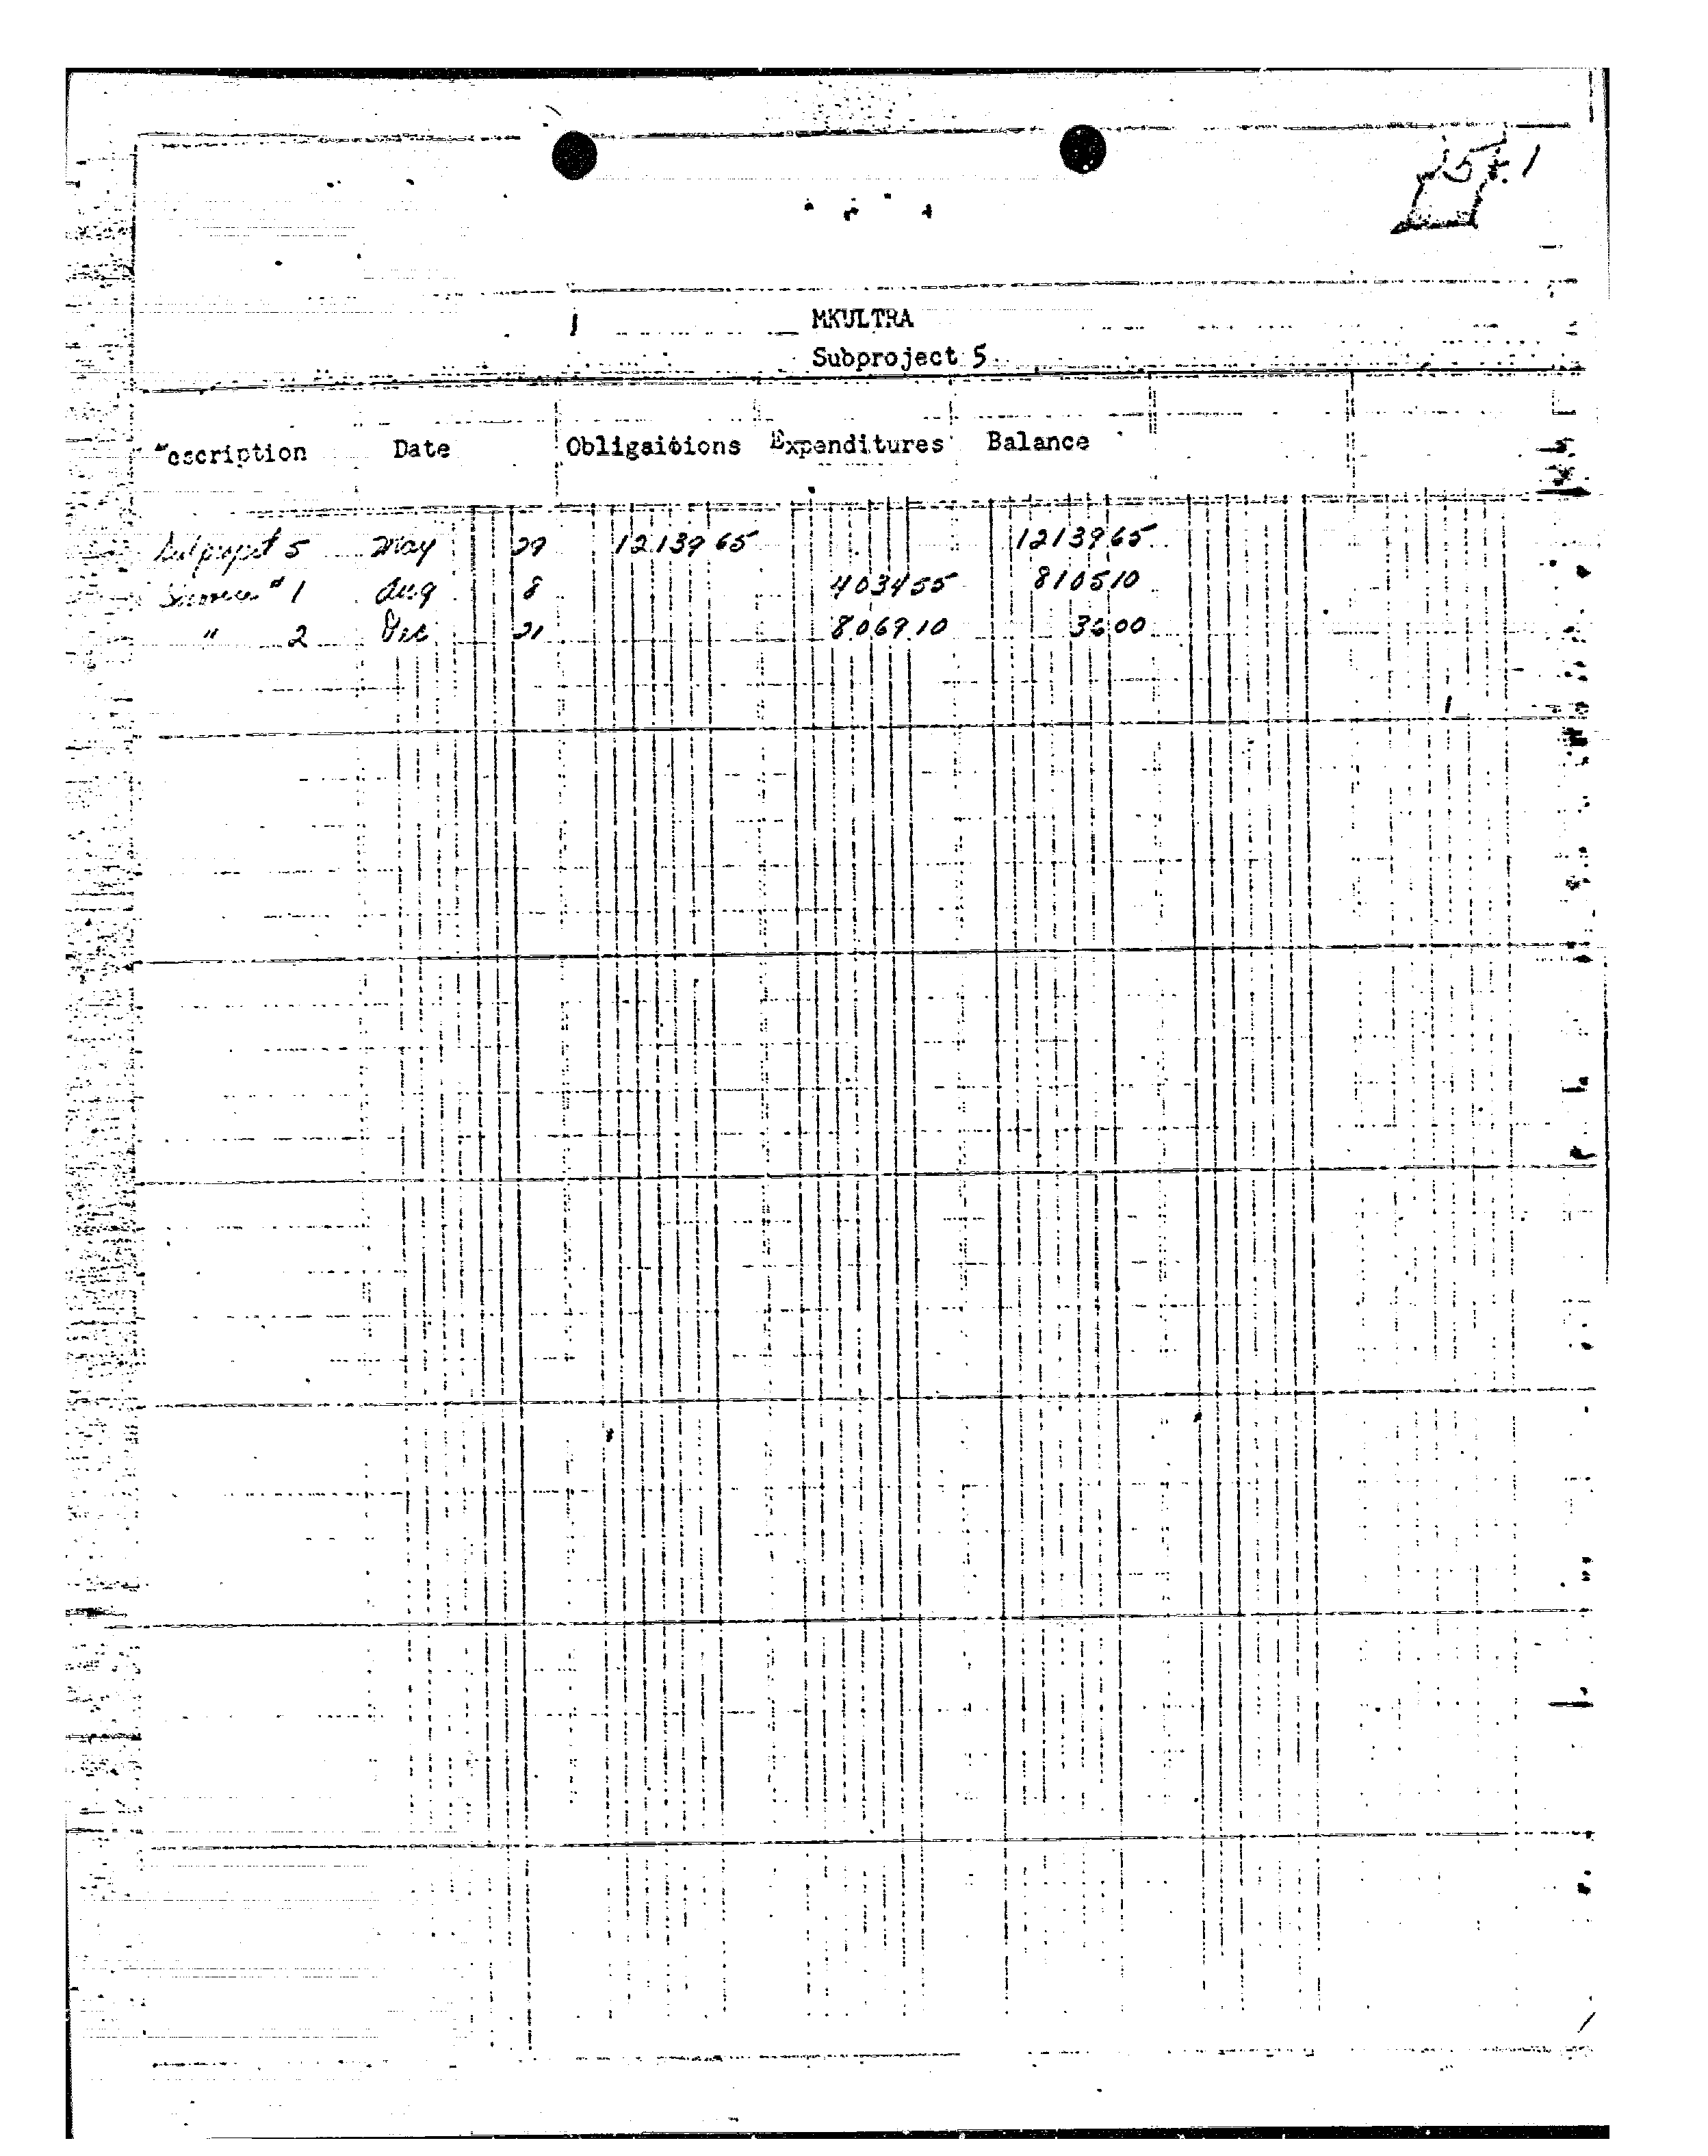 5-1
MKULTRA
Subproject 5
escription Date Obligaitions Expenditures Balance
Subproject 5 May 29 12139 65 12139 65
Invoice # 1 Aug 8 4034 55 8105 10
" 2 Dec 21 8069 10 36 00